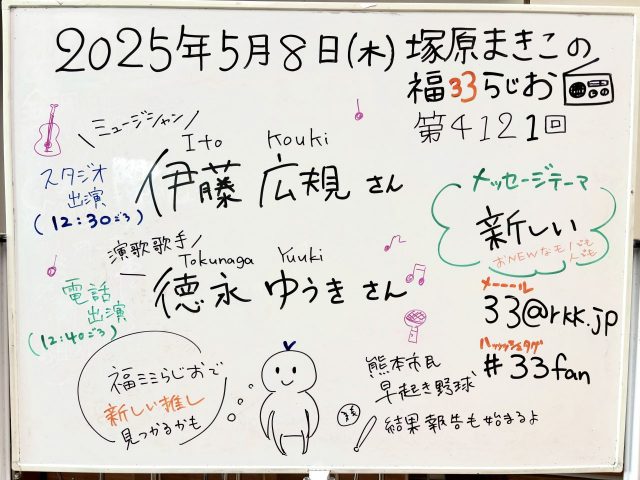 2025年5月8日(木) 塚原まきこの
福33らじお
第4121回
ミュージシャン
Ito Kouki
伊藤 広規 さん
スタジオ
出演
(12:30ごろ)
メッセージテーマ
新しい
おNEWなモノでも
人でも
演歌歌手
Tokunaga Yuuki
徳永 ゆうき さん
電話
出演
(12:40ごろ)
メーール
33@rkk.jp
ハッッシュタグ
#33fan
福ミミらじおで
新しい推し
見つかるかも
熊本市民
早起き野球
結果報告も始まるよ